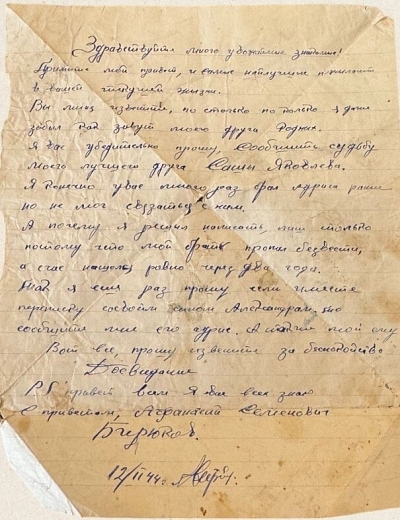 Здравствуйте много уважаемые знакомые!
Примите мой привет, и самые наилучшие пожелания
в вашей текущей жизни.
Вы меня известите, но столько я даже
забыл как зовут моего друга родных.
Я вас убедительно прошу, сообщить судьбу
моего лучшего друга Саши Яковлева.
Я конечно у вас много раз брал адреса ранее
но не мог связаться с ним.
А почему я решил написать, лишь только
потому что мой брат пропал безвести,
а счас нашолся равно через два года.
я ещё раз прошу если имеете
переписку со своим сыном Александром, то
сообщите мне его адрес. А также мой ему
Вот все, прошу извените за беспокойство
Досвидание
PS привет вам я вас всех знаю
С приветом, Афанасий Семенович
Бирюков.
12/II 44 г.